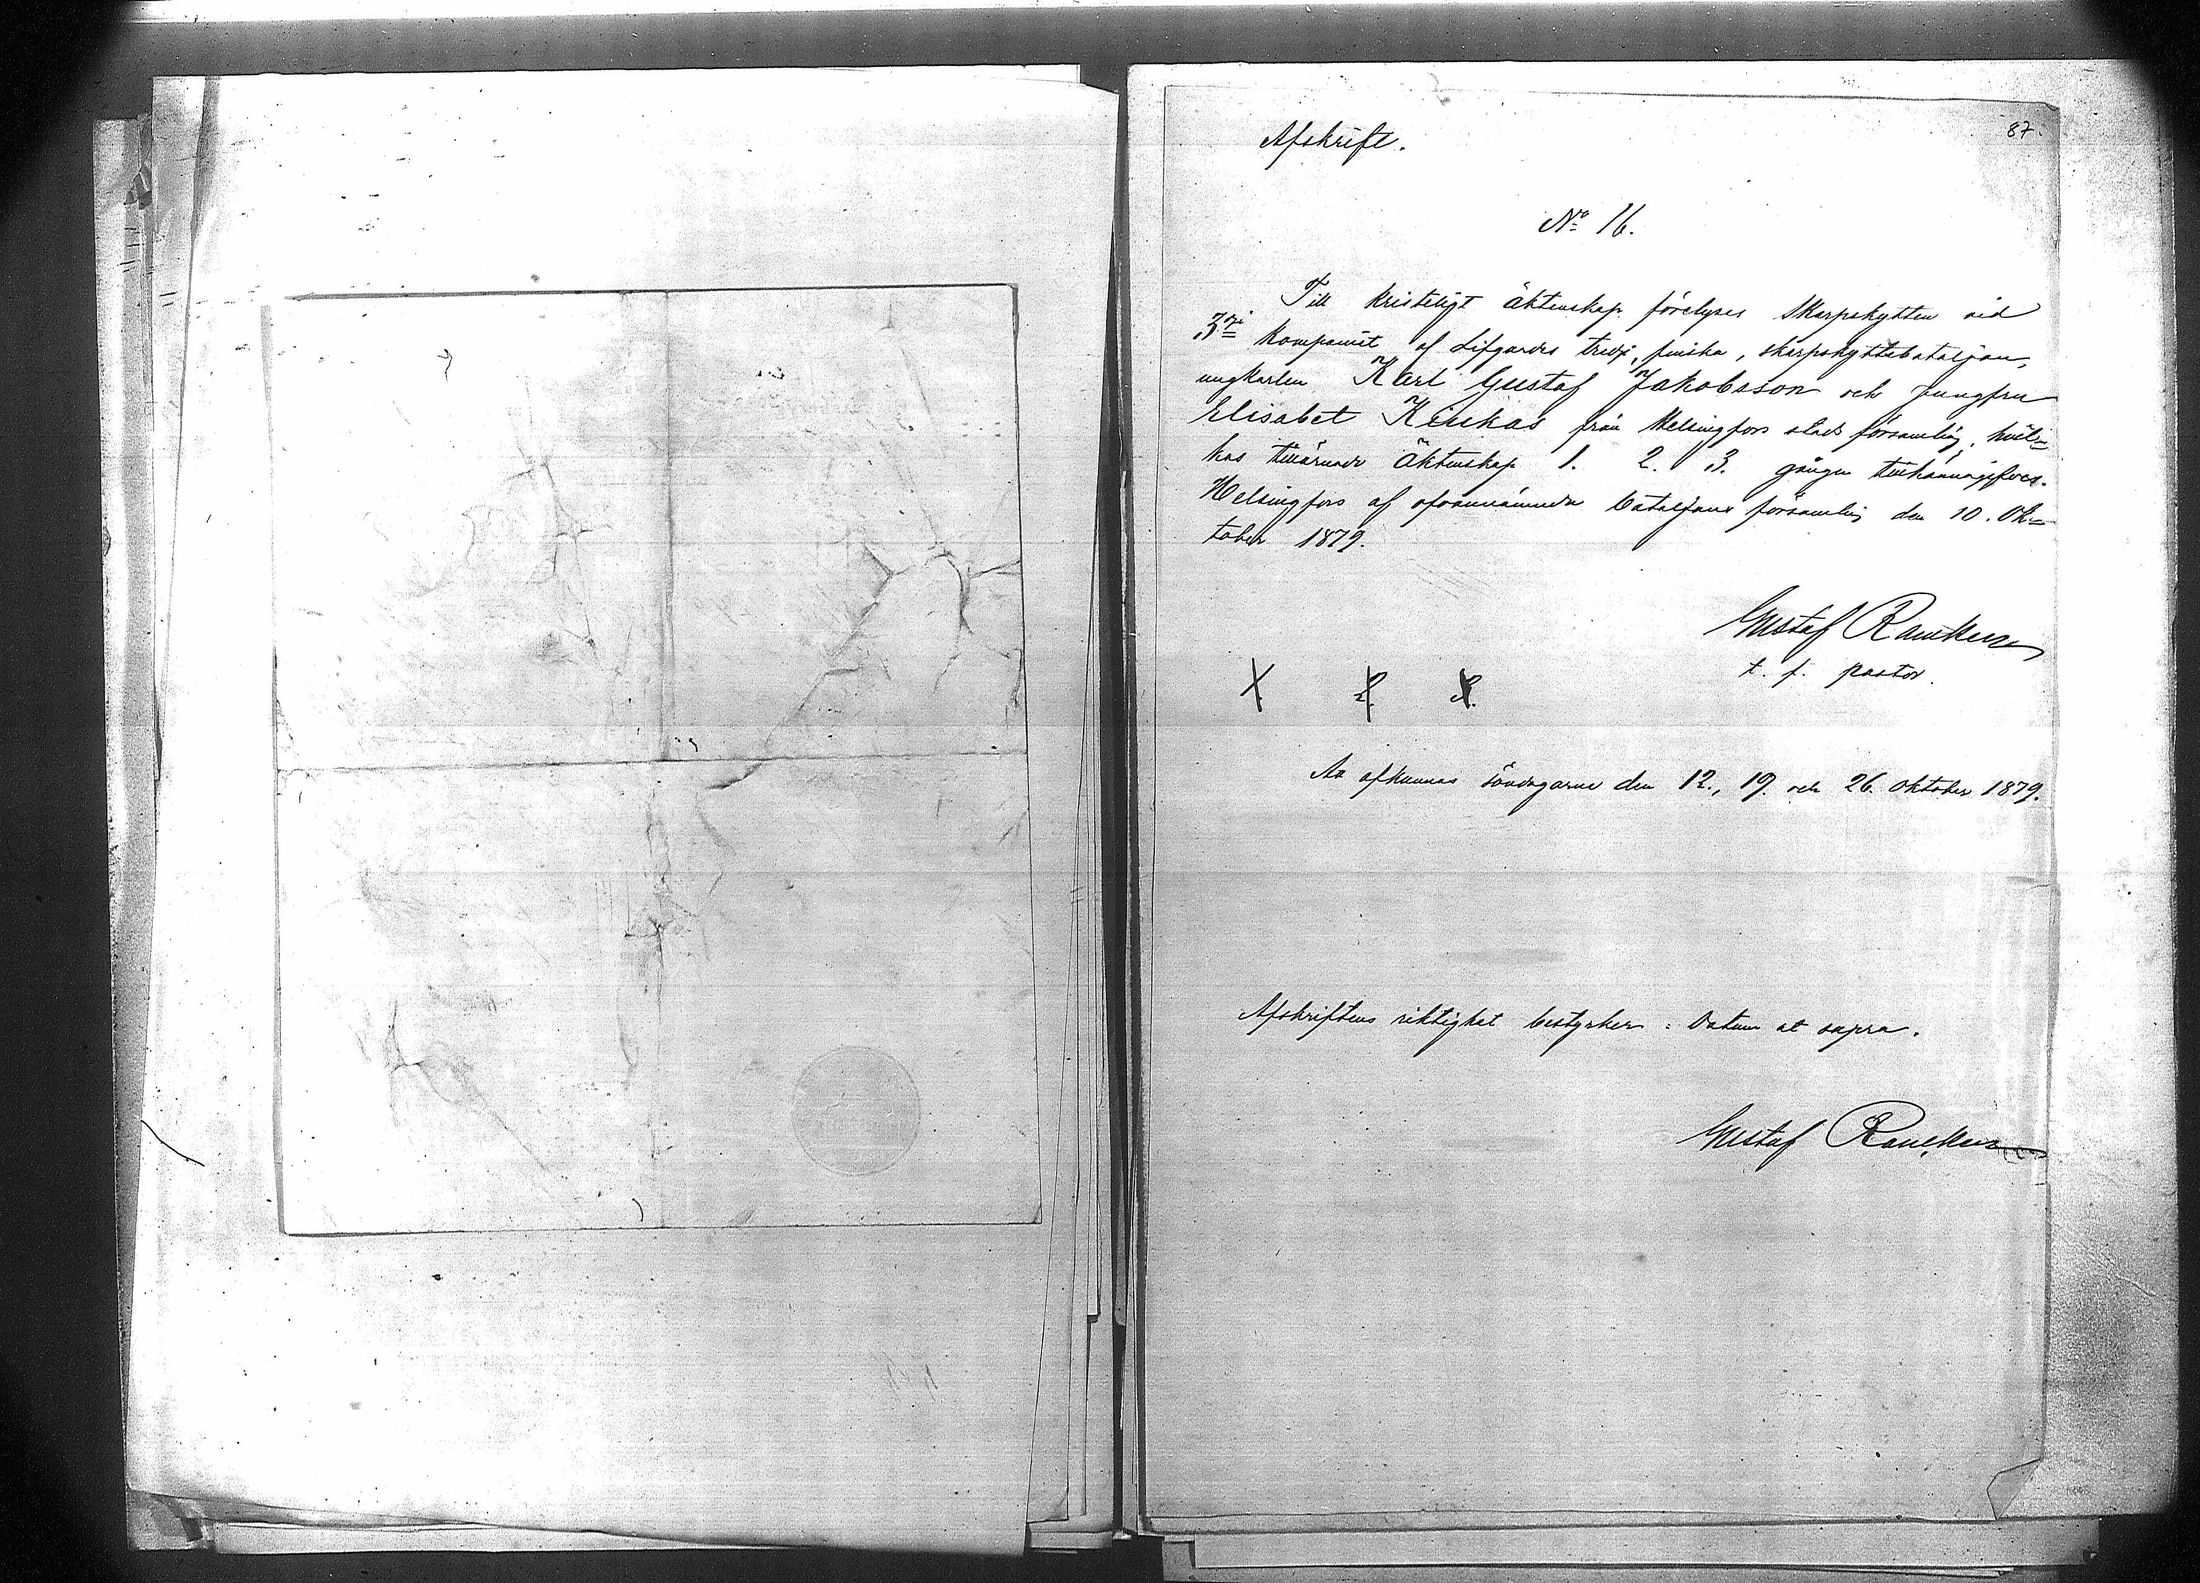 87.
Afskrift.
No 16.
Till kristeligt äktenskap förelyses Skarpskytten vid
3dje kompaniet af Lifgardes tredje, finska, skarpskyttebataljon,
ungkarlen Karl Gustaf Jakobsson och Jungfru
Elisabet Kiukas från Helsingfors stads församling, hvil=
kas äktenskap 1. 2. 3. gången
Helsingfors af ofvannämnda bataljons församling den 10. Ok=
tober 1879.
Gustaf Rancken
t. f. pastor.
1. 2. 3.
Aa afkunnas söndagarne den 12., 19. och 26. Oktober 1879.
Afskriftens riktighet bestyrker: Datum at supra.
Gustaf Rancken